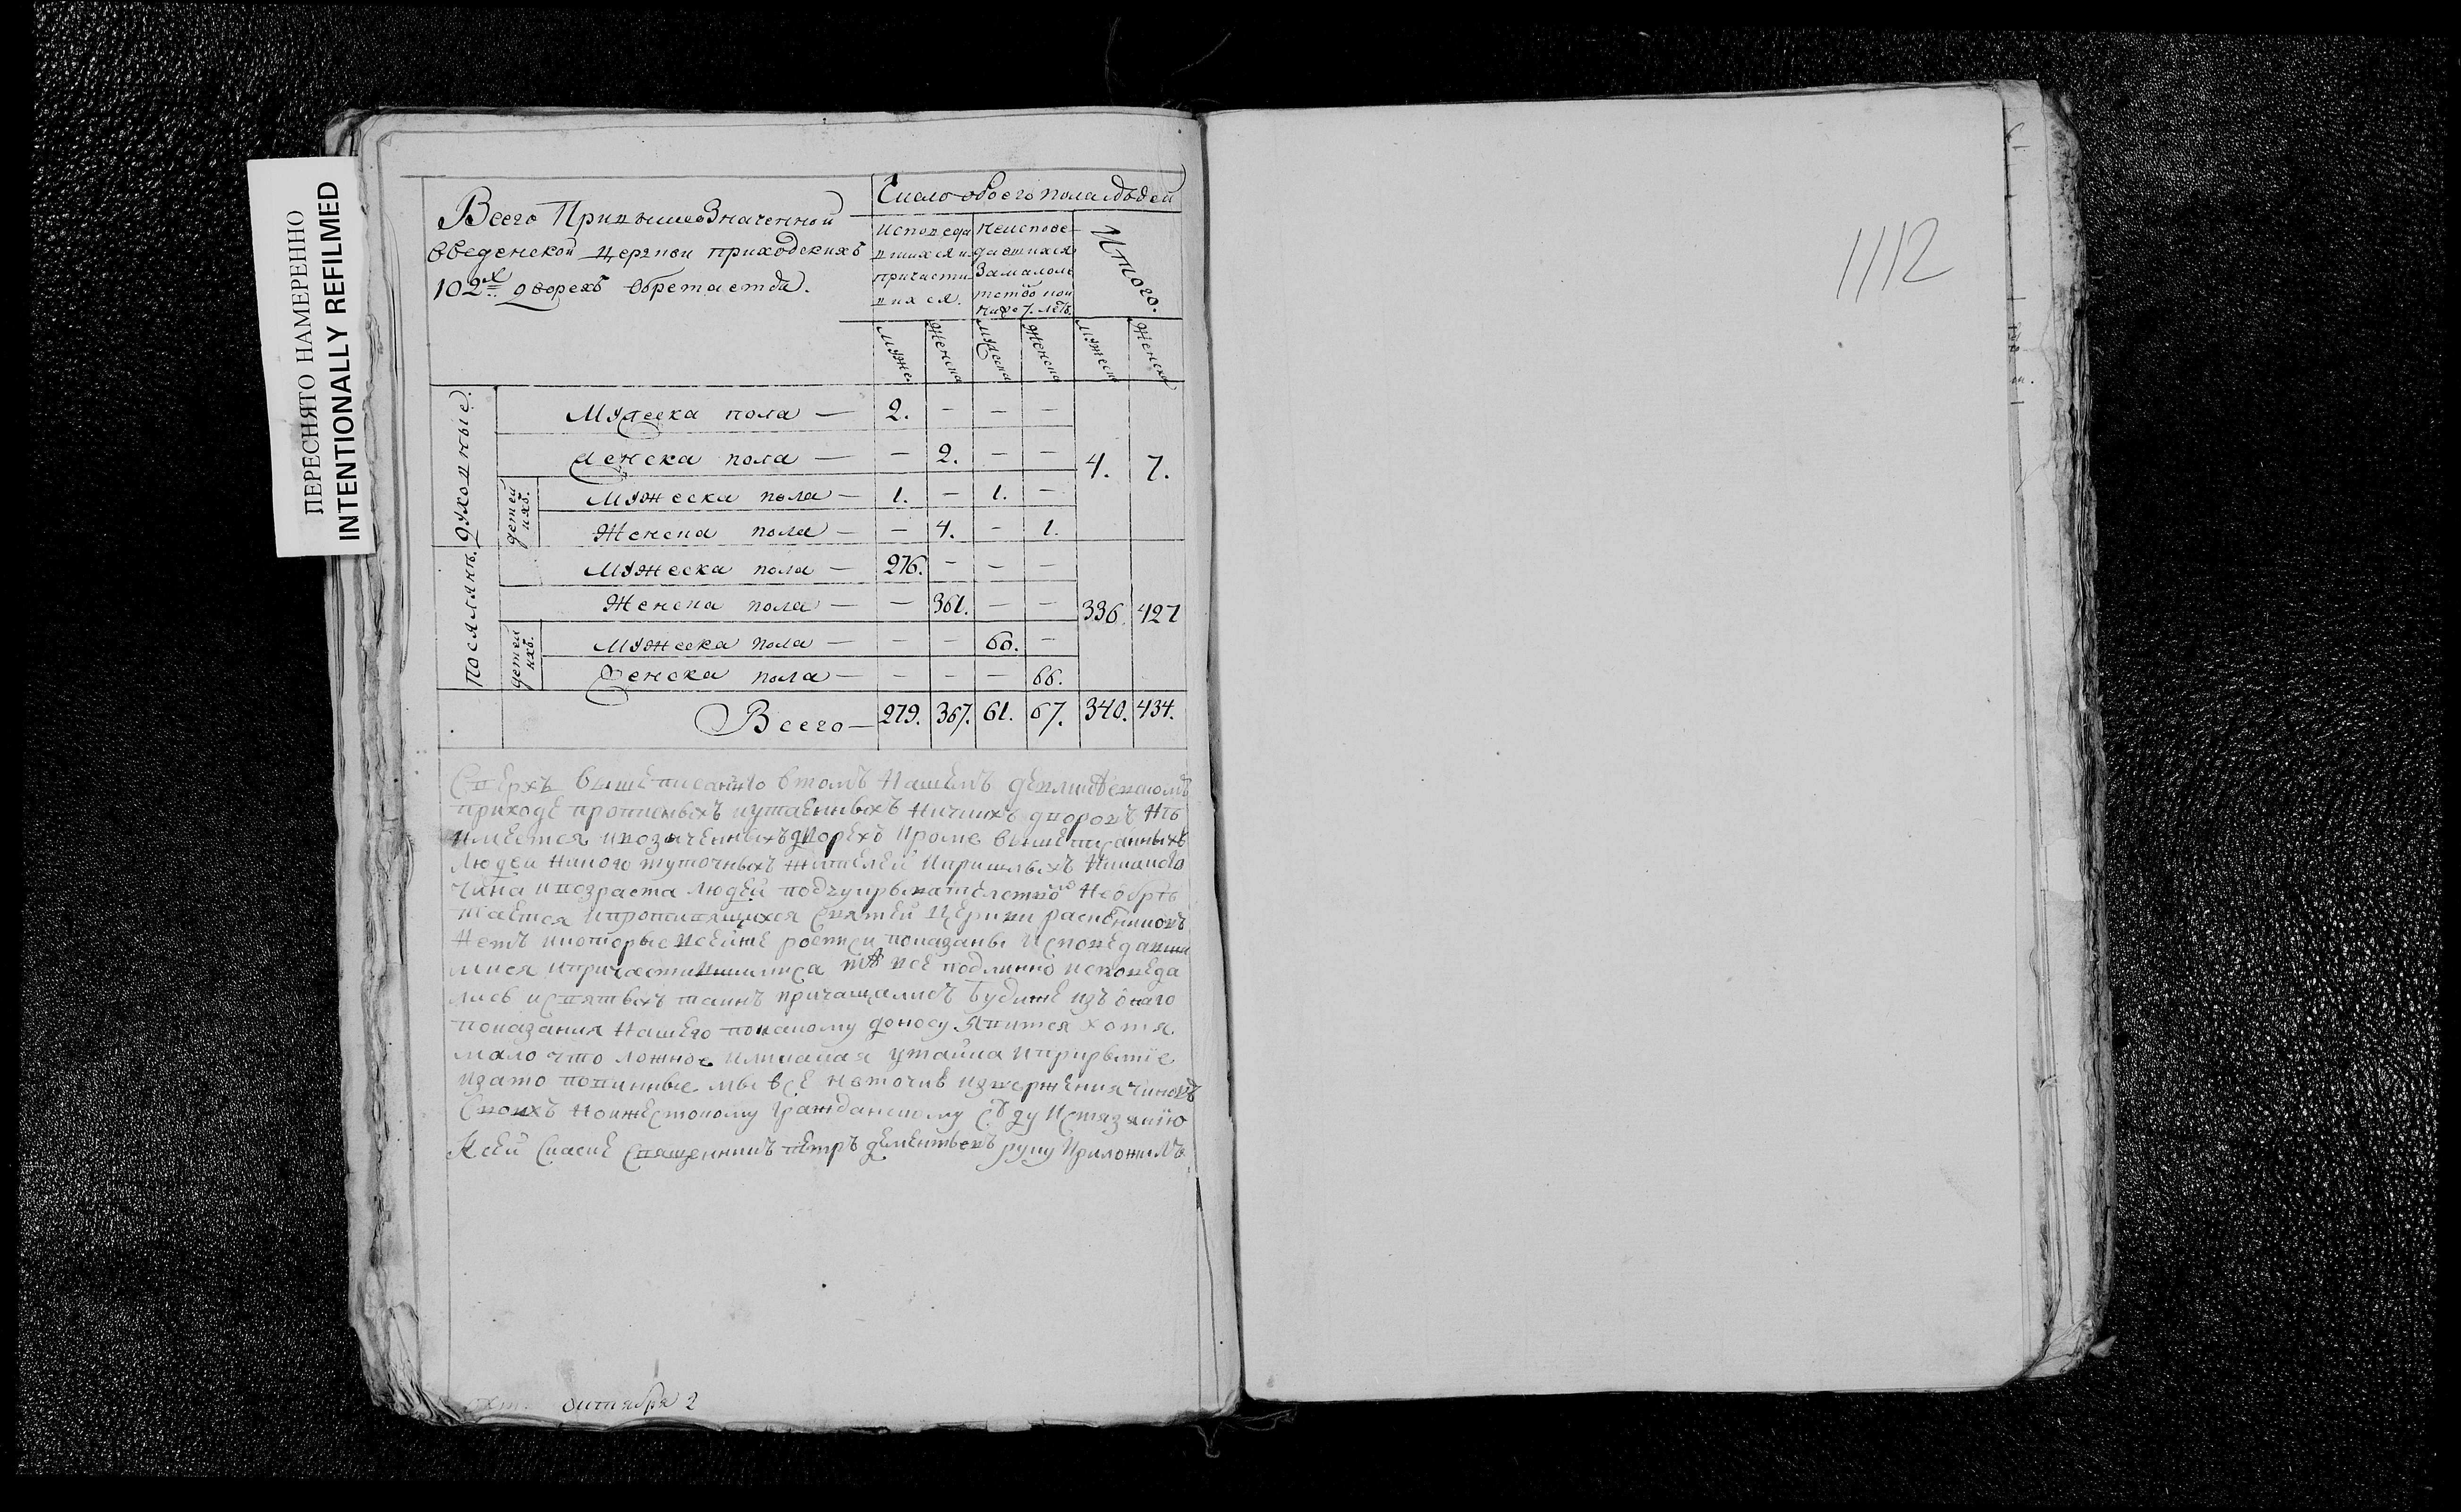 ПЕРЕСНЯТО НАМЕРЕННО
INTENTIONALLY REFILMED
Всего При вышеозначенной
введенской церкви приходскихъ
102х дворехъ обретаетца.
Число обоего пола людей
Исповеда
вшихся и
причасти
вихся.
Неиспове
давшихся
За малолѣ
тство кои
ниже 7. летъ.
Итого.
Мужес Женска Мужеска Женска Мужеск Женска
духовные.
Мужеска пола — 2. — — —
Женска пола — — 2. — —
4. 7.
детей ихъ.
Мужеска пола — 1. — 1. —
Женска пола — — 4. — 1.
поселянъ.
Мужеска пола — 276. — — —
Женска пола — — 361. — —
336. 427
детей ихъ.
Мужеска пола — — — 60. —
Женска пола — — — — 66.
Всего — 279. 367. 61. 67. 340. 434.
Сверхъ вышеписанного в томъ нашемъ
приходе прописныхъ и утаенныхъ ничиихъ дворовъ не
имеется и в означенныхъ дворехъ кроме вышеписанныхъ
людей никого туточныхъ жителей и пришлыхъ никакого
чина и возраста людей подчуркрывательством не обре
тается и противящихся святей церкви раскольниковъ
нетъ и которые в сей же росписи показаны исповедавши
мися и причастившимися те все подлинно исповеда
лись и святыхъ таинъ причащались будеже изъ онаго
показания нашего по какому доносу явится хотя
мало что ложное или какая утайка и прикрытие
и за то повинные мы все не точию извержения чиновъ
своихъ но и жестокому гражданскому суду истязанию
К сей скаске священникъ петръ дементьевъ руку приложилъ
октября 2
1112